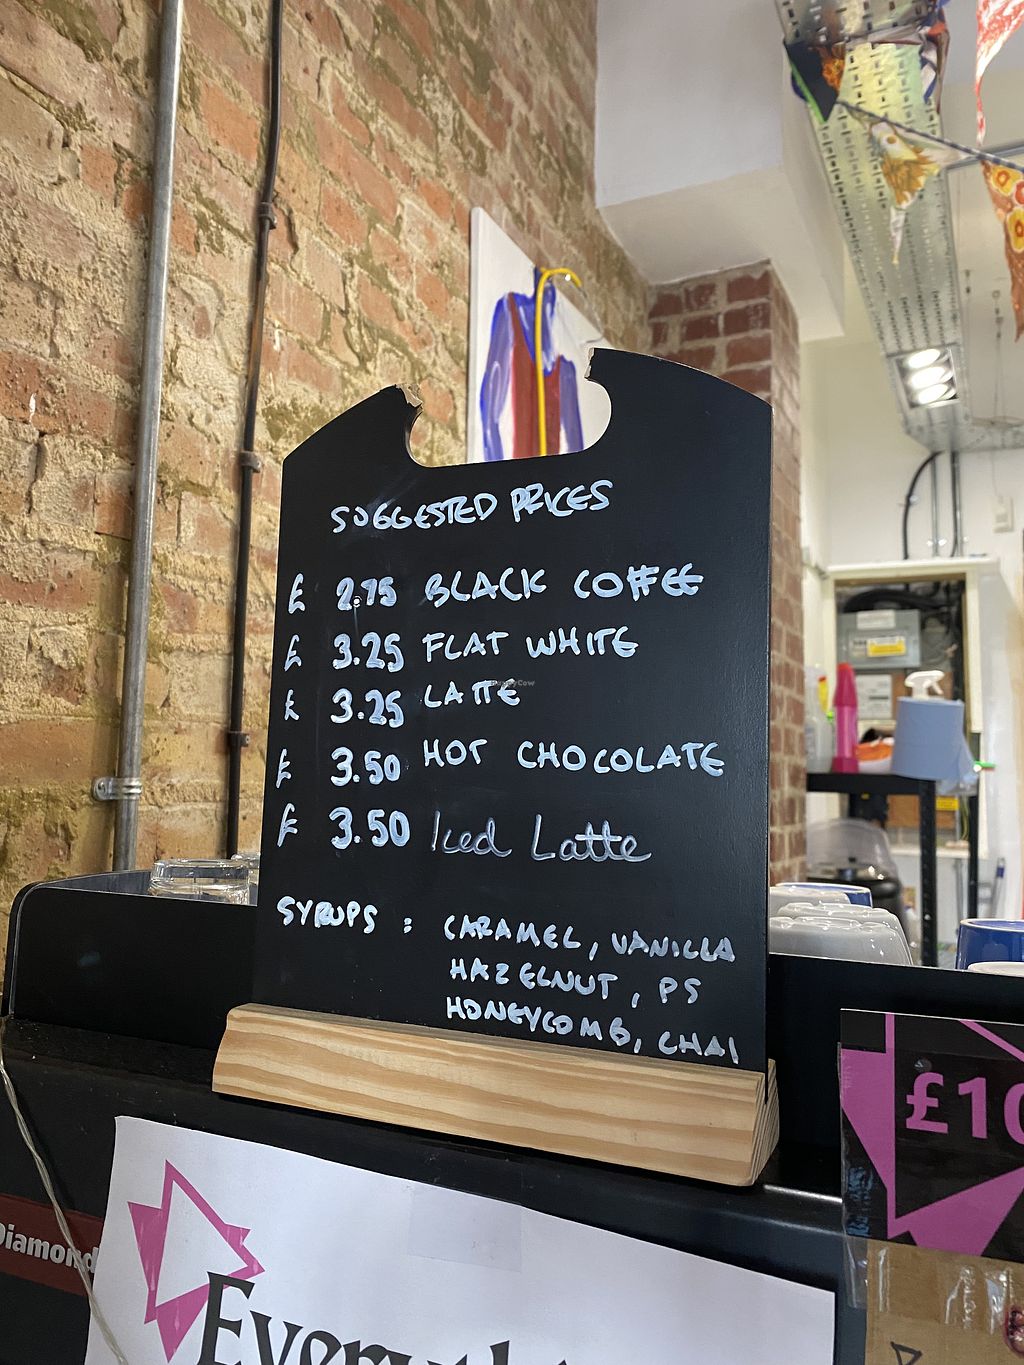 SUGGESTED PRICES
£ 2.75 BLACK COFFEE
£ 3.25 FLAT WHITE
£ 3.25 LATTE
£ 3.50 HOT CHOCOLATE
£ 3.50 Iced Latte
SYRUPS : CARAMEL, VANILLA
HAZELNUT, PS
HONEYCOMB, CHAI
£10
Diamond